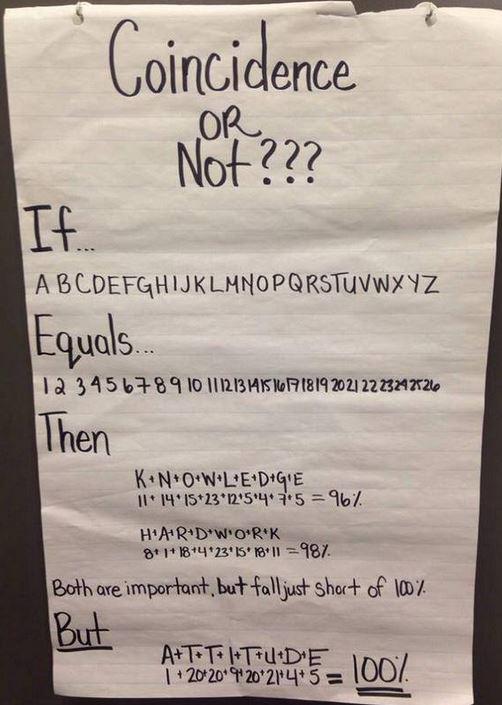 Coincidence
OR
Not???
If...
A B C D E F G H I J K L M N O P Q R S T U V W X Y Z
Equals...
1 2 3 4 5 6 7 8 9 10 11 12 13 14 15 16 17 18 19 20 21 22 23 24 25 26
Then
K+N+O+W+L+E+D+G+E
11+14+15+23+12+5+4+7+5=96%
H+A+R+D+W+O+R+K
8+1+18+4+23+15+18+11=98%
Both are important, but fall just short of 100%.
But
A+T+T+I+T+U+D+E
1+20+20+9+20+21+4+5=100%